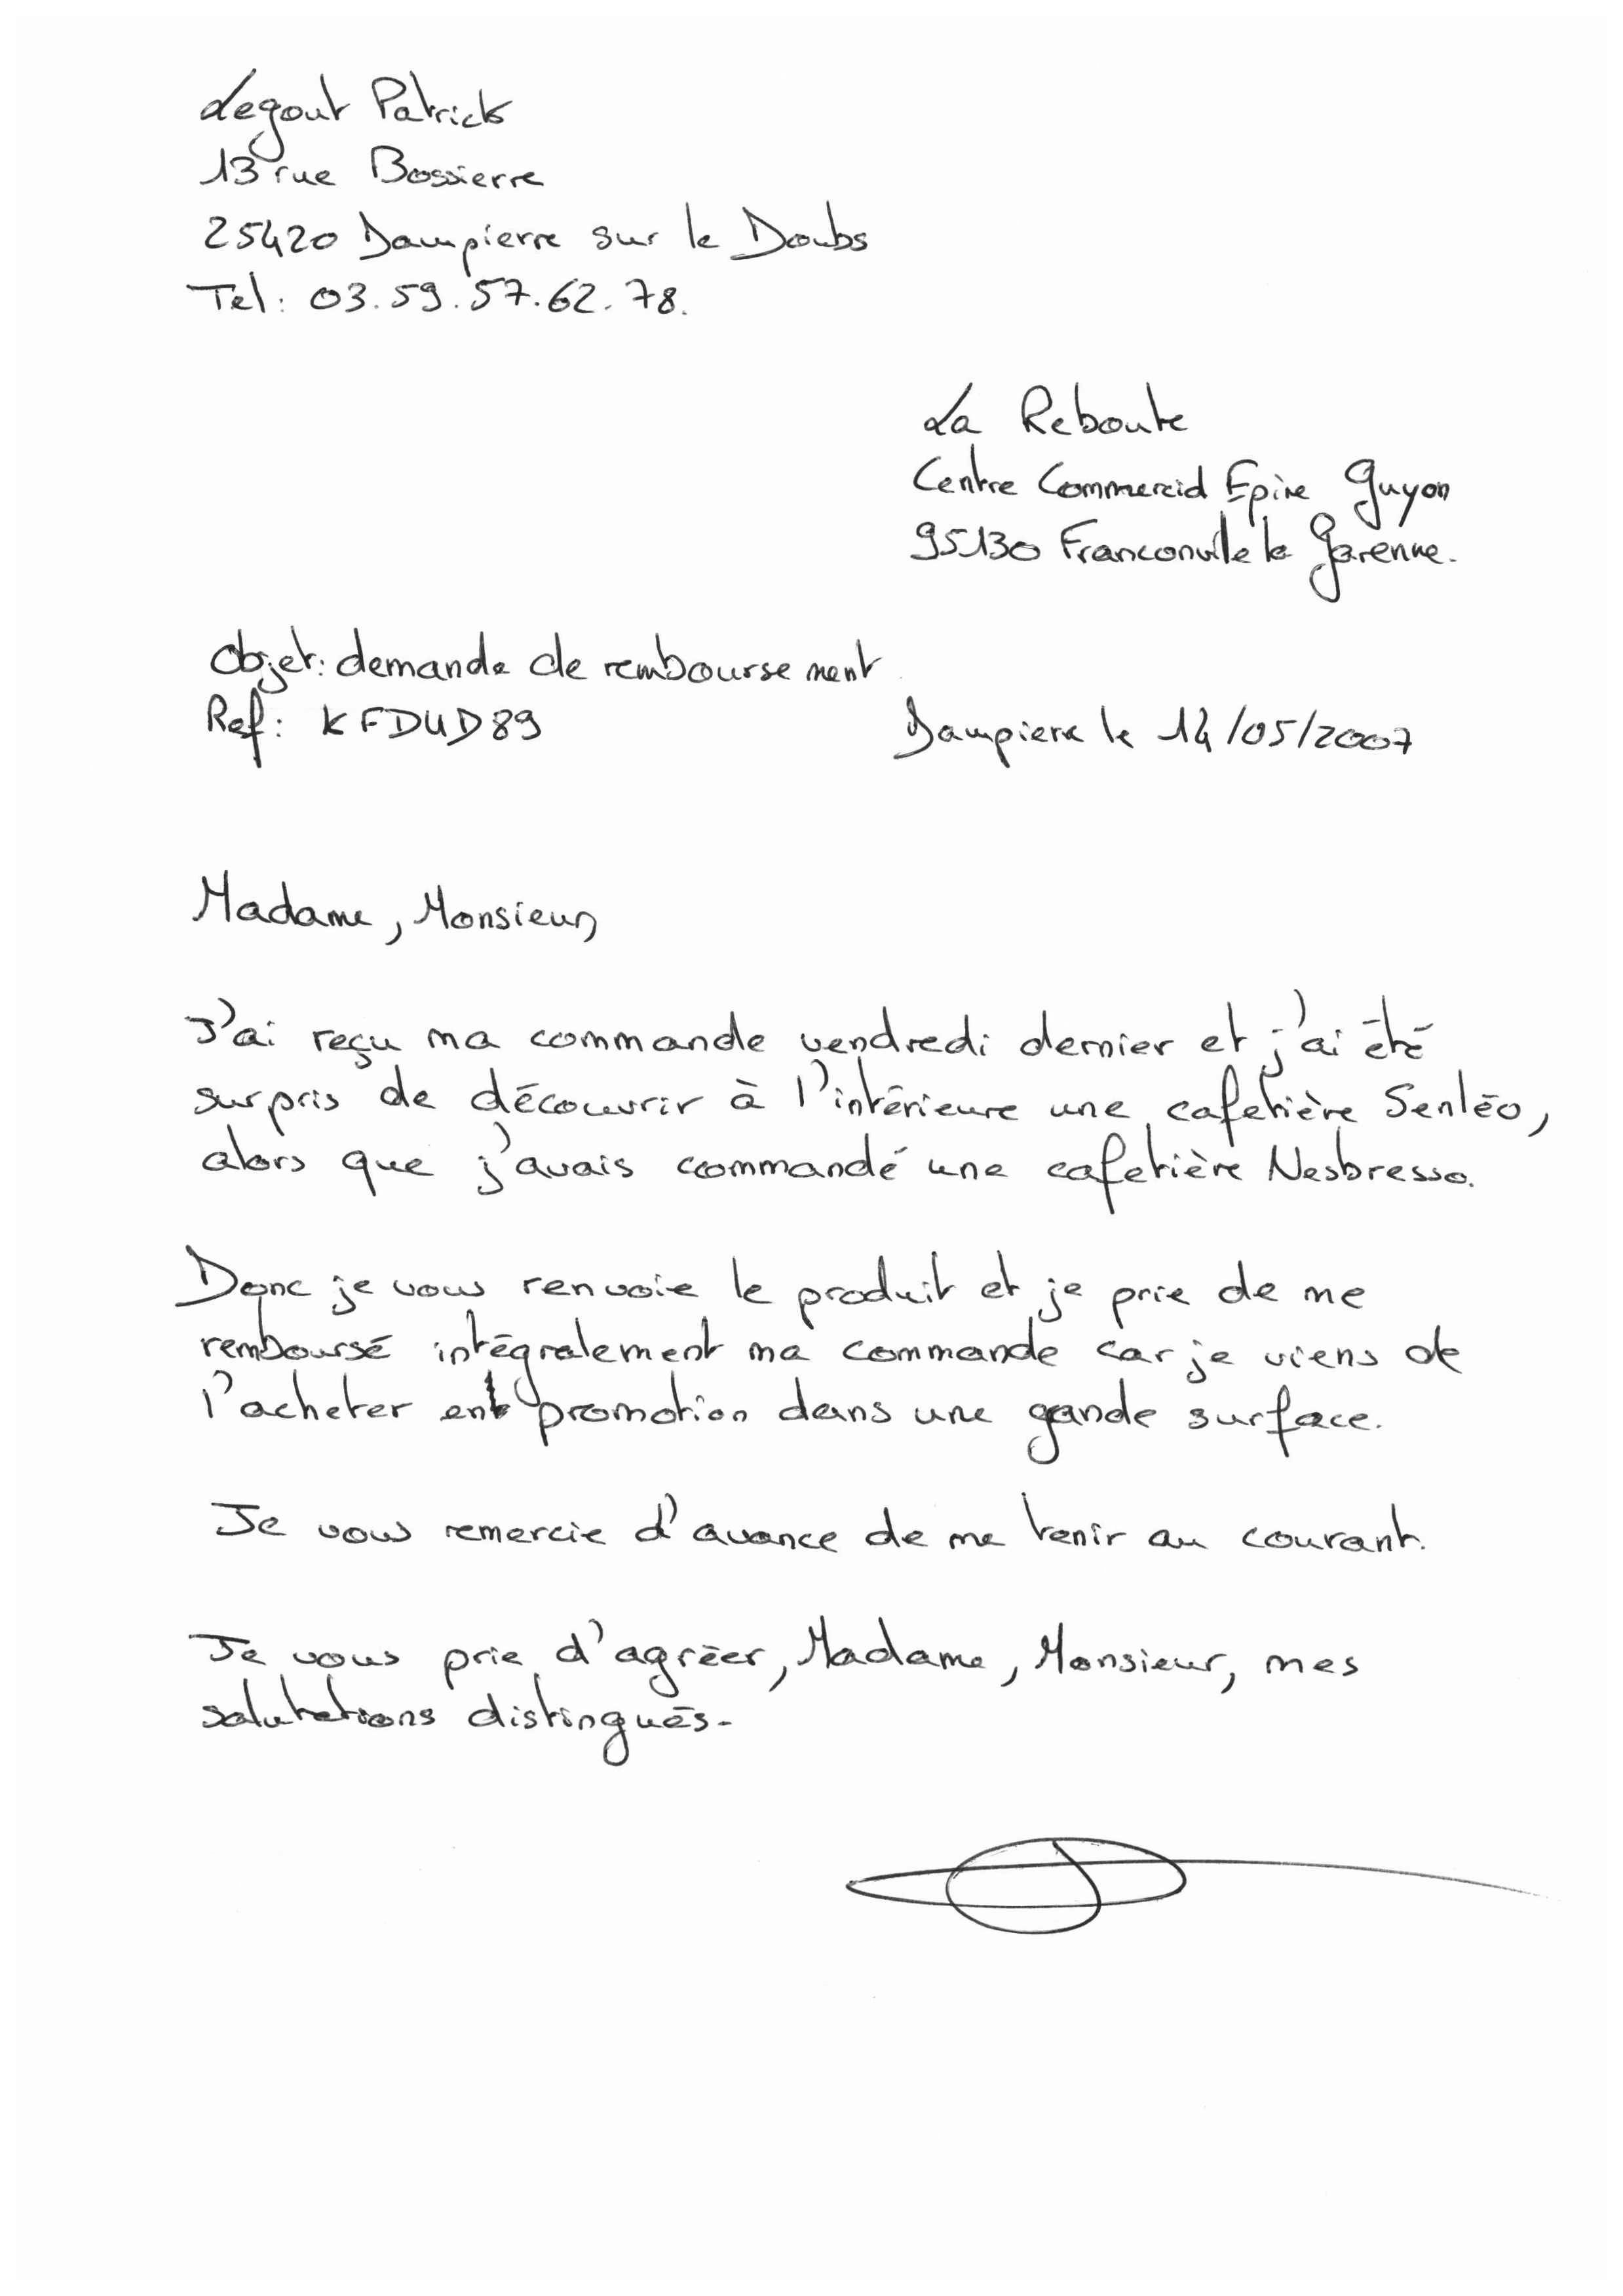 Legout Patrick
13 rue Bossierre
25420 Dampierre sur le Doubs
Tel: 03.59.57.62.78.
La Reboute
Centre Commercial Epine Guyon
95130 Franconville la Garenne.
Objet: demande de remboursement
Ref: KFDUD89
Dampierre le 14/05/2007
Madame, Monsieur,
J'ai reçu ma commande vendredi dernier et j'ai été
surpris de découvrir à l'intérieure une cafetière Senléo,
alors que j'avais commandé une cafetière Nesbresso.
Donc je vous renvoie le produit et je prie de me
remboursé intégralement ma commande car je viens de
l'acheter en promotion dans une gande surface.
Je vous remercie d'avance de me tenir au courant.
Je vous prie d'agréer, Madame, Monsieur, mes
salutations distingués.